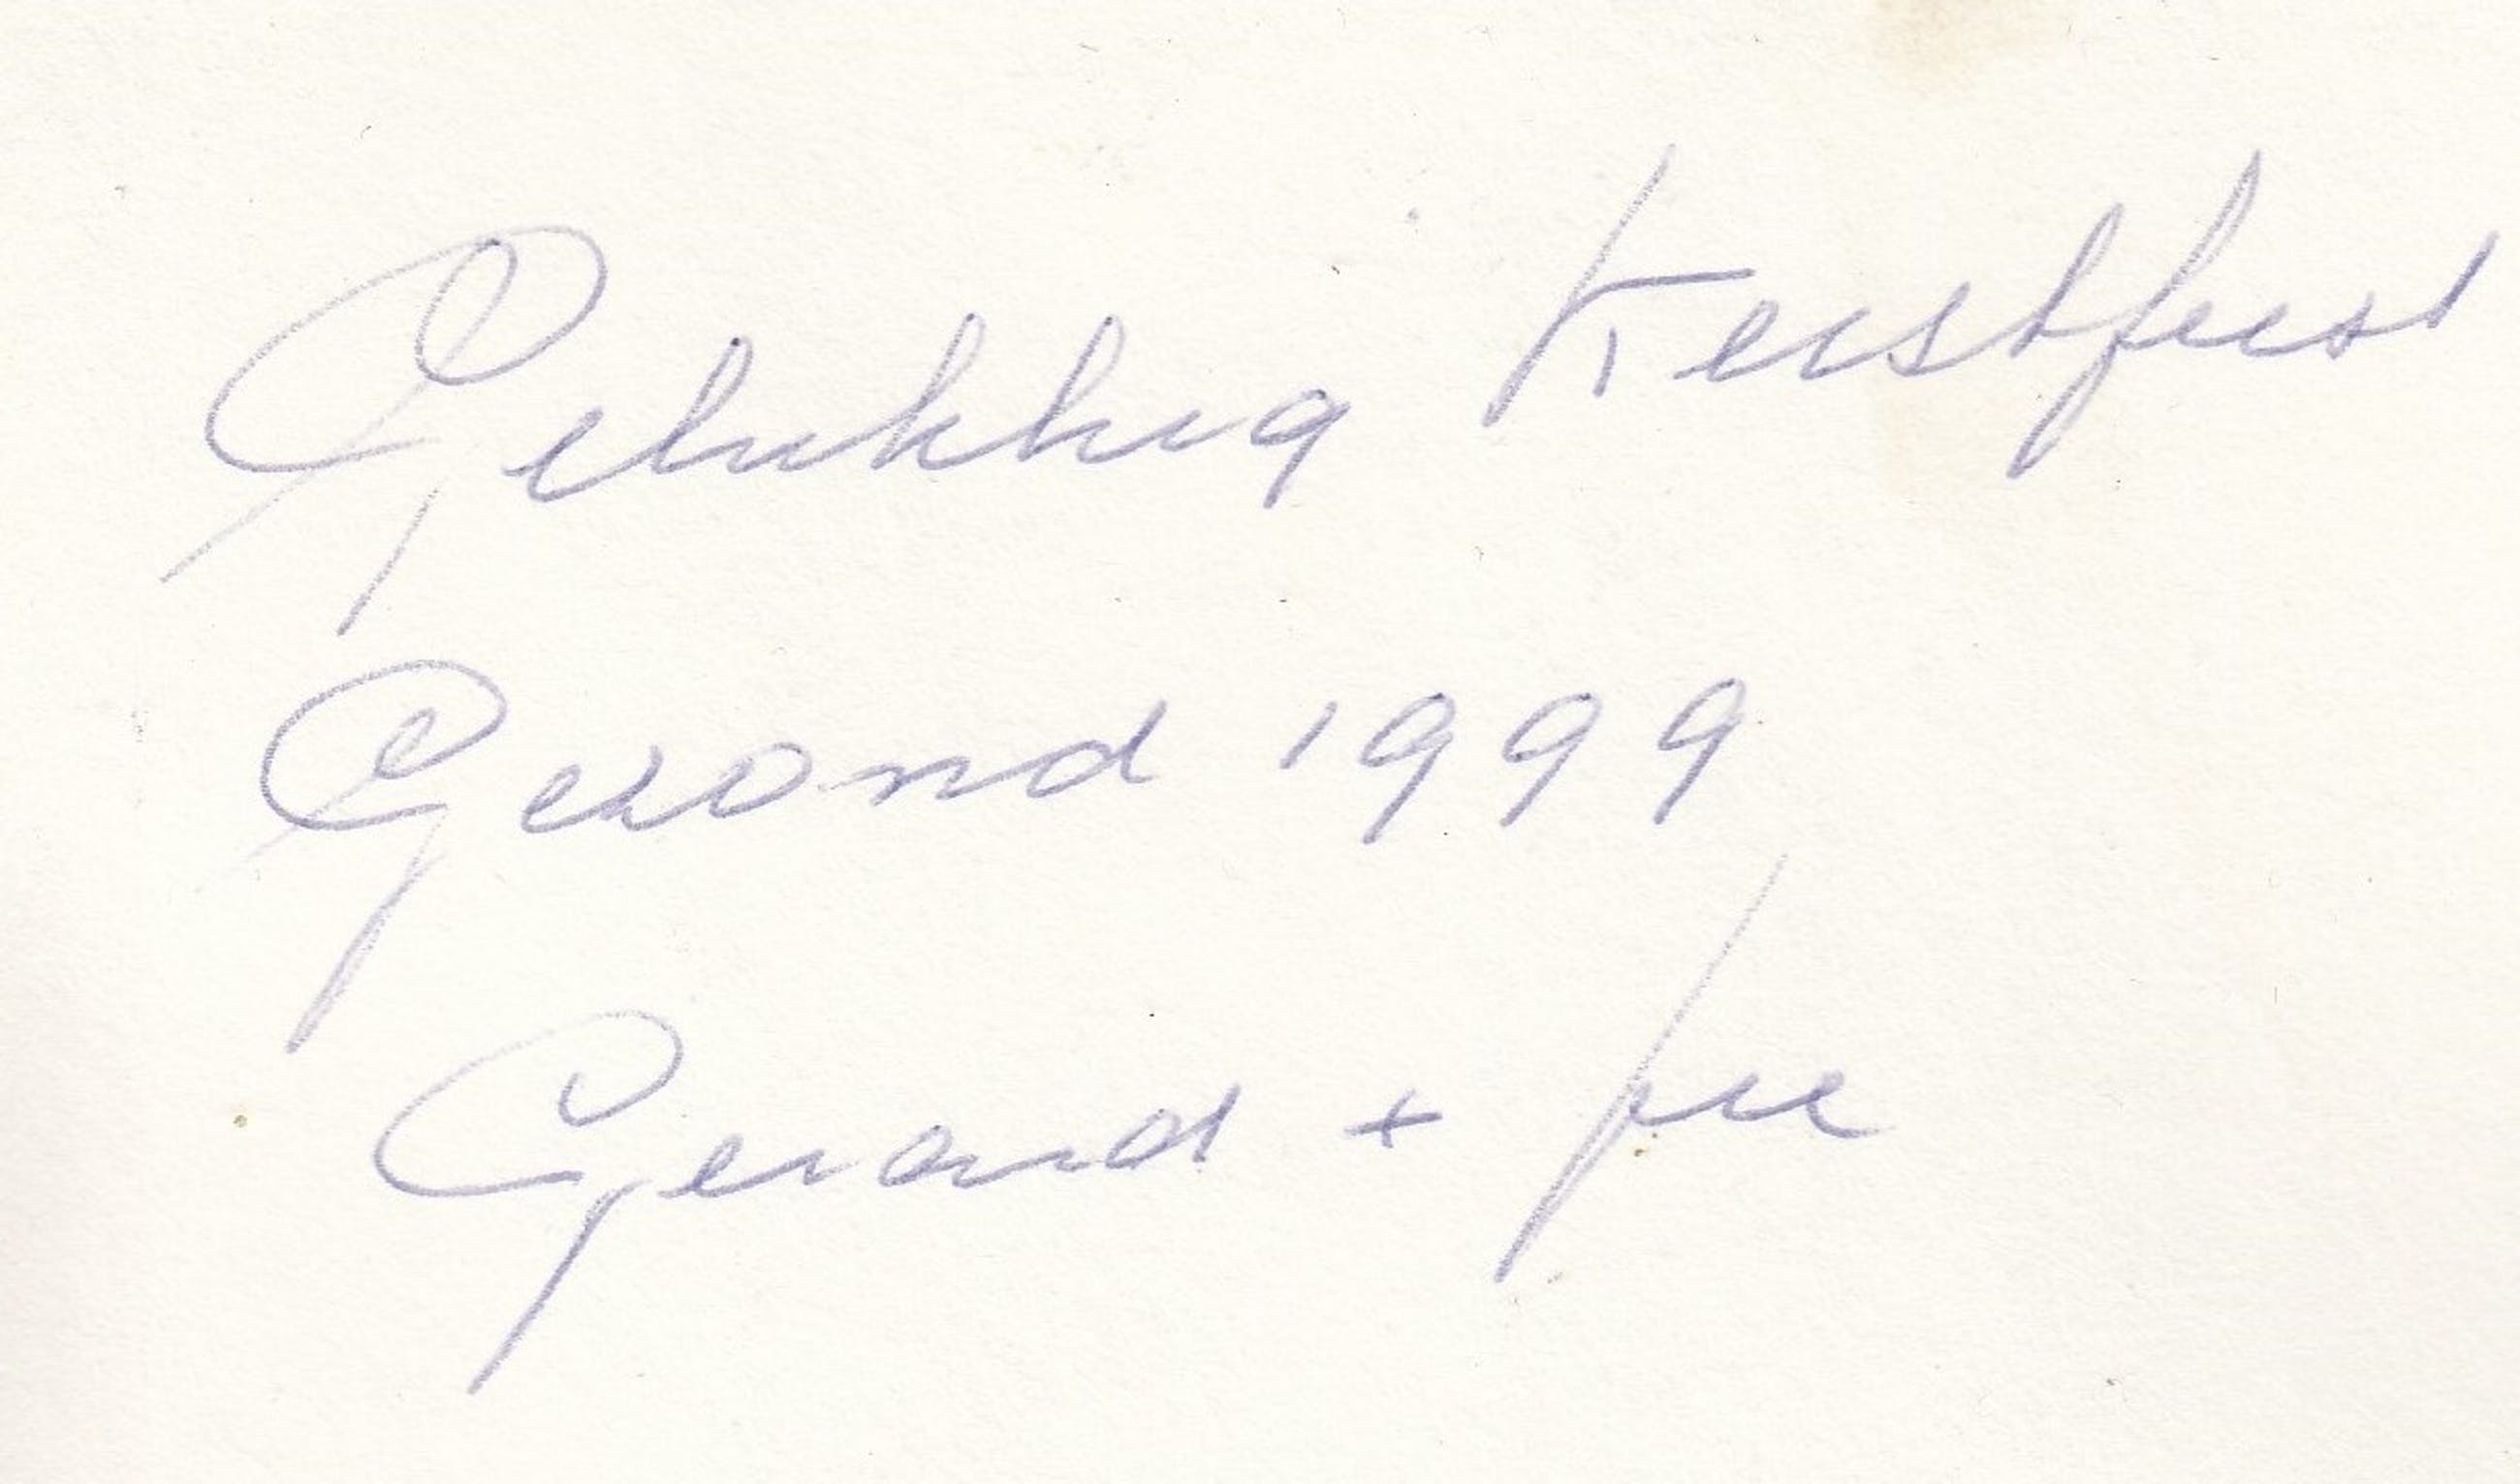 Gelukkig Kerstfeest
Gezond 1999
Gerard +